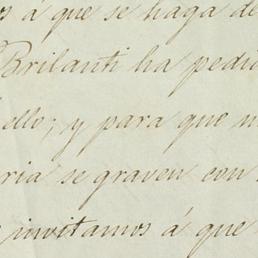 s á que se haga de
Brilanti ha pedi
ello; y para que n
ria se graven con
invitamos á que